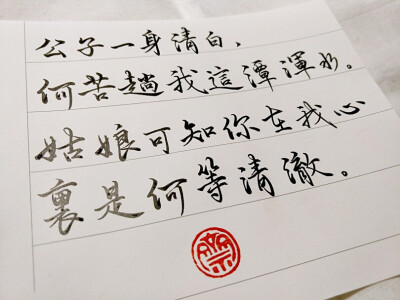 公子一身清白、
何苦趟我這潭渾水。
姑娘可知你在我心
裏是何等清澈。